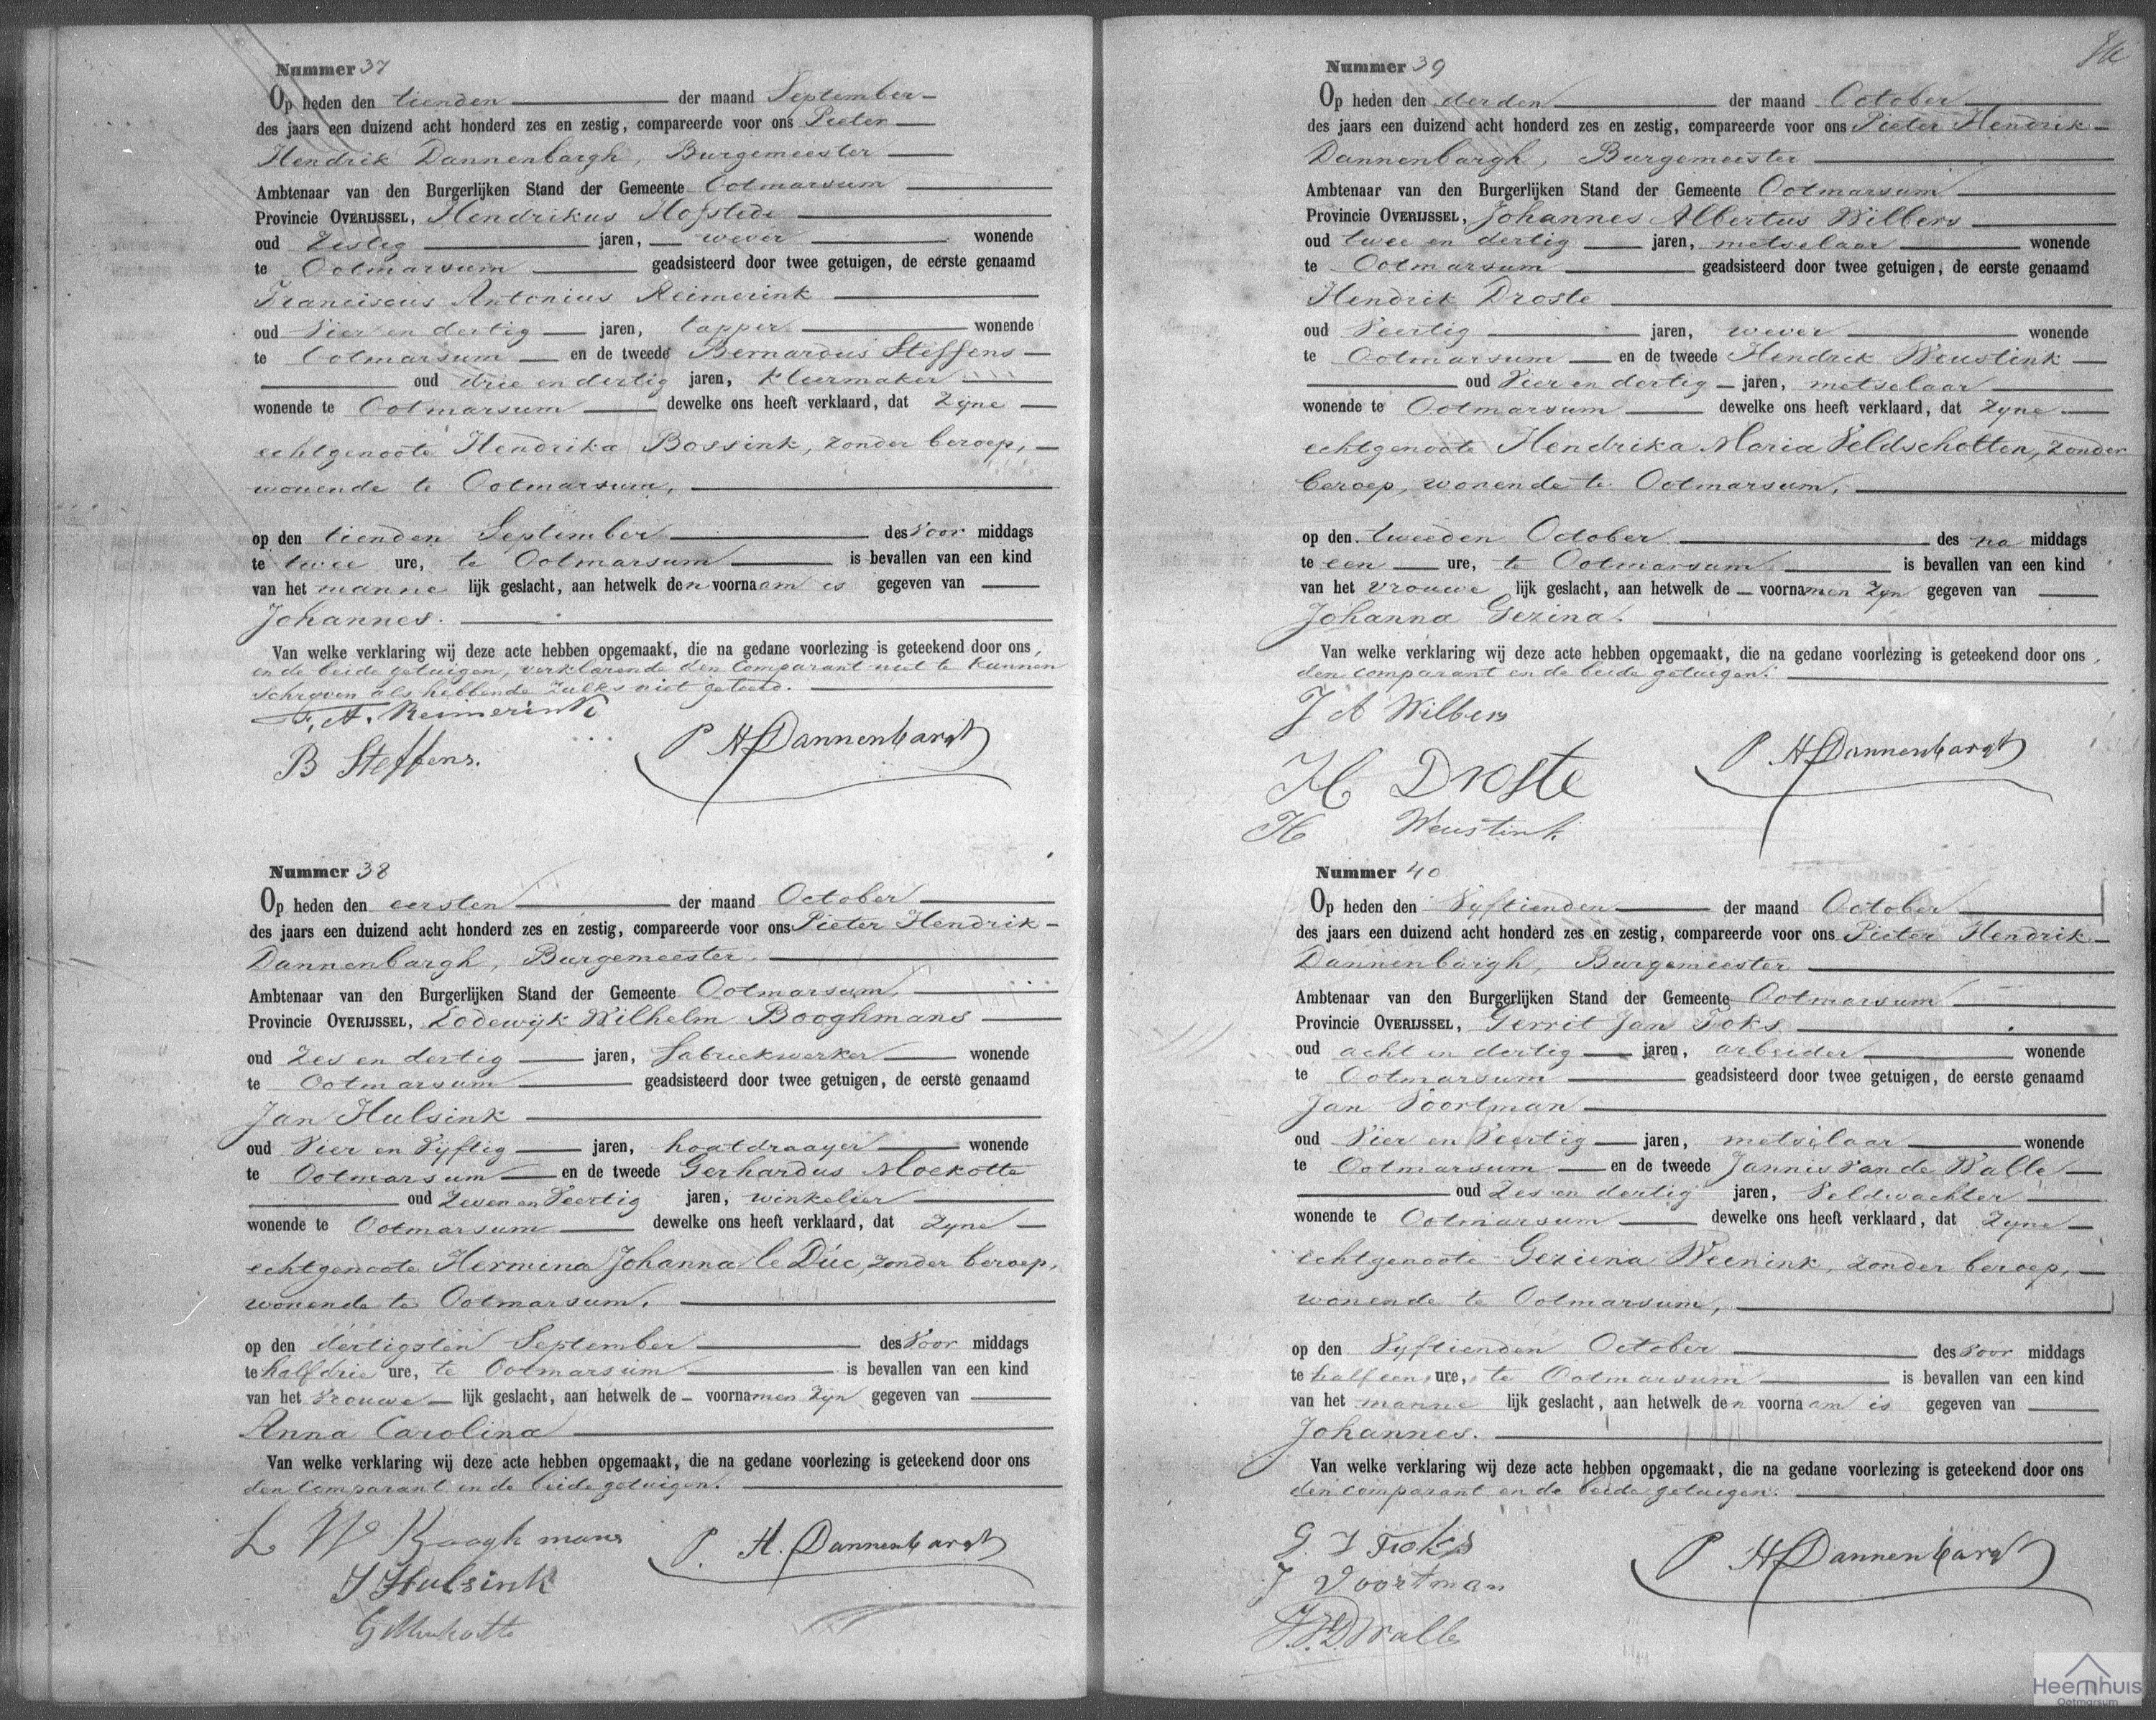 Nummer 37
Op heden den tienden der maand September
des jaars een duizend acht honderd zes en zestig, compareerde voor ons Pieter
Hendrik Dannenbargh, Burgemeester
Ambtenaar van den Burgerlijken Stand der Gemeente Ootmarsum
Provincie OVERIJSSEL, Hendrikus Hofstede
oud Zestig jaren, wever wonende
te Ootmarsum geadsisteerd door twee getuigen, de eerste genaamd
Franciscus Antonius Reimerink
oud Vier en dertig jaren, tapper wonende
te Ootmarsum en de tweede Bernardus Steffens
oud drie en dertig jaren, kleermaker
wonende te Ootmarsum dewelke ons heeft verklaard, dat Zyne
echtgenoote Hendrika Bossink, zonder beroep,
wonende te Ootmarsum,
op den tienden September des Voor middags
te twee ure, te Ootmarsum is bevallen van een kind
van het manne lijk geslacht, aan hetwelk den voornaam is gegeven van
Johannes.
Van welke verklaring wij deze acte hebben opgemaakt, die na gedane voorlezing is geteekend door ons,
en de beide getuigen, verklarende den Comparant niet te kunnen
schryven als hebbende zulks niet geleerd.
F. A. Reimerink
B Steffens.
P H Dannenbargh
Nummer 38
Op heden den eersten der maand October
des jaars een duizend acht honderd zes en zestig, compareerde voor ons Pieter Hendrik
Dannenbargh, Burgemeester
Ambtenaar van den Burgerlijken Stand der Gemeente Ootmarsum
Provincie OVERIJSSEL, Lodewyk Wilhelm Booghmans
oud Zes en dertig jaren, fabriekwerker wonende
te Ootmarsum geadsisteerd door twee getuigen, de eerste genaamd
Jan Hulsink
oud Vier en Vyftig jaren, houtdraayer wonende
te Ootmarsum en de tweede Gerhardus Mockotte
oud Zeven en Veertig jaren, winkelier
wonende te Ootmarsum dewelke ons heeft verklaard, dat Zyne
echtgenoote Hermina Johanna le Duc, zonder beroep,
wonende te Ootmarsum,
op den dertigsten September des Voor middags
te half drie ure, te Ootmarsum is bevallen van een kind
van het Vrouwe lijk geslacht, aan hetwelk de voornamen zyn gegeven van
Anna Carolina
Van welke verklaring wij deze acte hebben opgemaakt, die na gedane voorlezing is geteekend door ons
den Comparant en de beide getuigen.
L W Booghmans
J Hulsink
P. H. Dannenbargh
Nummer 39
Op heden den derden der maand October
des jaars een duizend acht honderd zes en zestig, compareerde voor ons Pieter Hendrik
Dannenbargh, Burgemeester
Ambtenaar van den Burgerlijken Stand der Gemeente Ootmarsum
Provincie OVERIJSSEL, Johannes Albertus Wilbers
oud twee en dertig jaren, metselaar wonende
te Ootmarsum geadsisteerd door twee getuigen, de eerste genaamd
Hendrik Droste
oud Veertig jaren, wever wonende
te Ootmarsum en de tweede Hendrik Weustink
oud Vier en dertig jaren, metselaar
wonende te Ootmarsum dewelke ons heeft verklaard, dat zyne
echtgenoote Hendrika Maria Veldscholten, zonder
beroep, wonende te Ootmarsum,
op den tweeden October des na middags
te een ure, te Ootmarsum is bevallen van een kind
van het vrouwe lijk geslacht, aan hetwelk de voornamen zyn gegeven van
Johanna Gezina.
Van welke verklaring wij deze acte hebben opgemaakt, die na gedane voorlezing is geteekend door ons,
den comparant en de beide getuigen.
J A Wilbers
H Droste
H Weustink
P H Dannenbargh
Nummer 40
Op heden den Vyftienden der maand October
des jaars een duizend acht honderd zes en zestig, compareerde voor ons Pieter Hendrik
Dannenbargh, Burgemeester
Ambtenaar van den Burgerlijken Stand der Gemeente Ootmarsum
Provincie OVERIJSSEL, Gerrit Jan Foks
oud acht en dertig jaren, arbeider wonende
te Ootmarsum geadsisteerd door twee getuigen, de eerste genaamd
Jan Voortman
oud Vier en Veertig jaren, metselaar wonende
te Ootmarsum en de tweede Jannis van de Walle
oud Zes en dertig jaren, Veldwachter
wonende te Ootmarsum dewelke ons heeft verklaard, dat Zyne
echtgenoote Geziena Weenink, zonder beroep,
wonende te Ootmarsum,
op den Vyftienden October des Voor middags
te half een ure, te Ootmarsum is bevallen van een kind
van het manne lijk geslacht, aan hetwelk den voornaam is gegeven van
Johannes.
Van welke verklaring wij deze acte hebben opgemaakt, die na gedane voorlezing is geteekend door ons
den comparant en de beide getuigen.
G. J Foks
J Voortman
P H Dannenbargh
Heemhuis
Ootmarsum